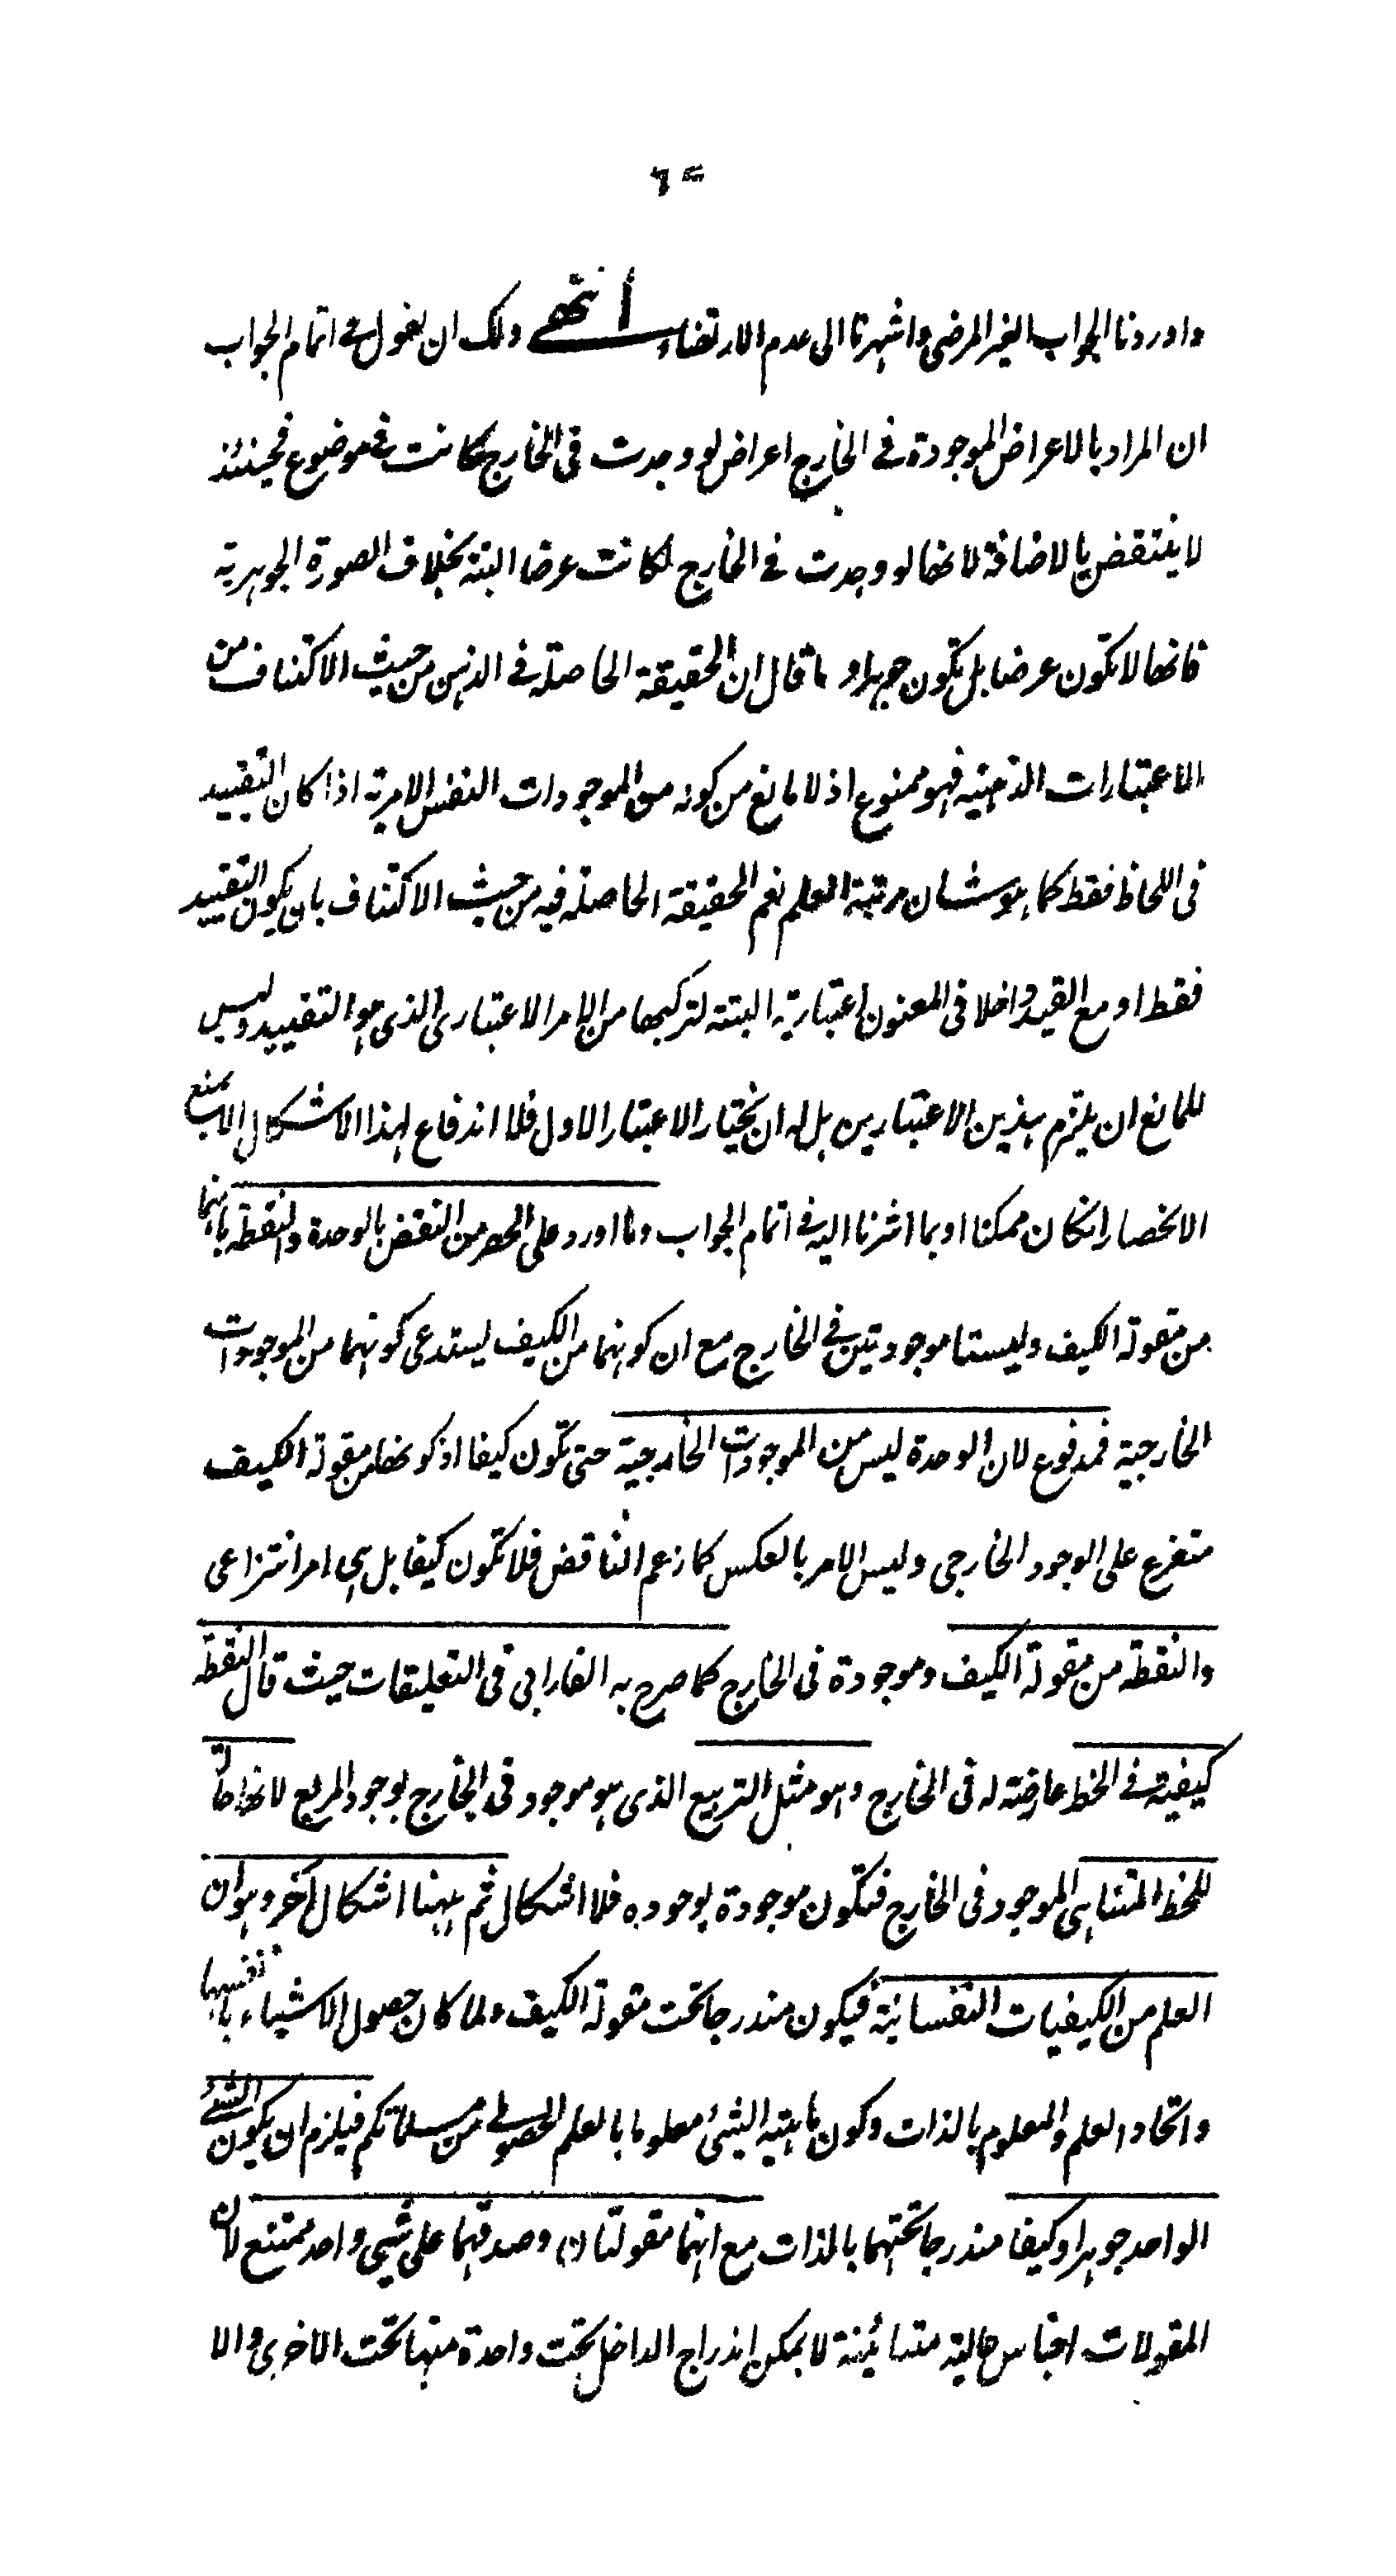 ٦٤
واوردنا الجواب الغير المرضى واشرنا الى عدم الارتضاء انتهى ولك ان تقول فى اتمام الجواب
ان المراد بالاعراض الموجودة فى الخارج اعراض لو وجدت فى الخارج كانت فى موضوع فحينئذ
لا ينتقض بالاضافة لانها لو وجدت فى الخارج لكانت عرضا البتة بخلاف الصورة الجوهرية
فانها لا تكون عرضا بل تكون جوهرا وما قال ان الحقيقة الحاصلة فى الذهن من حيث الاكتناف من
الاعتبارات الذهنية فهو ممنوع اذ لا مانع من كونه من الموجودات النفس الامرية اذا كان التقييد
فى اللحاظ فقط كما هو شان مرتبة العلم نعم الحقيقة الحاصلة فيه من حيث الاكتناف بان يكون التقييد
فقط او مع القيد داخلا فى المعنون اعتبارية البتة لتركبها من الامر الاعتبارى الذى هو التقييد وليس
للمانع ان يلتزم بهذين الاعتبارين بل له ان يختار الاعتبار الاول فلا اندفاع لهذا الاشكال الا بمنع
الانحصار انكان ممكنا او بما اشرنا اليه فى اتمام الجواب وما اورد على الحصر من النقض بالوحدة والنقطة بانهما
من مقولة الكيف وليستا موجودتين فى الخارج مع ان كونهما من الكيف يستدعى كونهما من الموجودات
الخارجية فمدفوع لان الوحدة ليس من الموجودات الخارجية حتى تكون كيفا اذ كونها من مقولة الكيف
متفرع على الوجود الخارجى وليس الامر بالعكس كما زعم الناقض فلا تكون كيفا بل هى امر انتزاعى
والنقطة من مقولة الكيف وموجودة فى الخارج كما صرح به الفارابى فى التعليقات حيث قال النقطة
كيفية فى الخط عارضة له فى الخارج وهو مثل التربيع الذى هو موجود فى الخارج بوجود المربع لانها حالة
للخط المتناهى الموجود فى الخارج فتكون موجودة بوجوده فلا اشكال ثم ههنا اشكال آخر وهو ان
العلم من الكيفيات النفسانية فيكون مندرجا تحت مقولة الكيف ولما كان حصول الاشياء بانفسها
واتحاد العلم والمعلوم بالذات وكون ماهية الشئ معلوما بالعلم الحصولى من مسلماتكم فيلزم ان يكون الشئ
الواحد جوهرا وكيفا مندرجا تحتهما بالذات مع انهما مقولتان وصدقهما على شئ واحد ممتنع لان
المقولات اجناس عالية متبائنة لا يمكن اندراج الداخل تحت واحدة منها تحت الاخرى والا